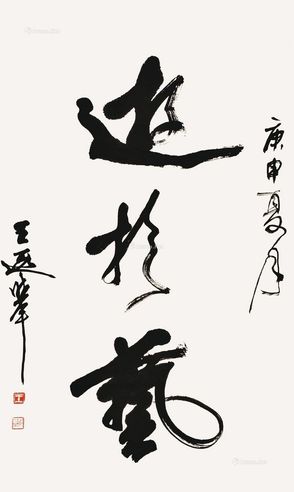 庚申夏月
遊於藝
王遐舉